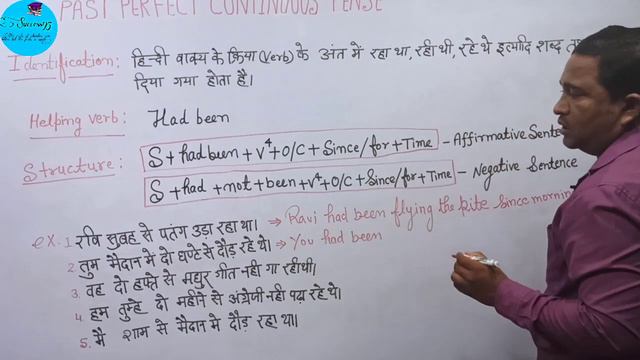 PAST PERFECT CONTINUOUS TENSE
Success
Identification: हिन्दी वाक्य के क्रिया (Verb) के अंत में रहा था, रही थी, रहे थे इत्यादि शब्द
दिया गया होता है।
Helping verb: Had been
Structure: S + had been + V⁴ + O/C + Since/for + Time - Affirmative Sente
S + had + not + been + V⁴ + O/C + Since/for + Time - Negative Sentence
ex. 1. रवि सुबह से पतंग उड़ा रहा था। ⇒ Ravi had been flying the kite since mornin
2. तुम मैदान मे दो घण्टे से दौड़ रहे थे। ⇒ You had been
3. वह दो हफ्ते से मधुर गीत नही गा रही थी।
4. हम तुम्हे दो महीने से अंग्रेजी नही पढ़ा रहे थे।
5. मै शाम से मैदान मे दौड़ रहा था।